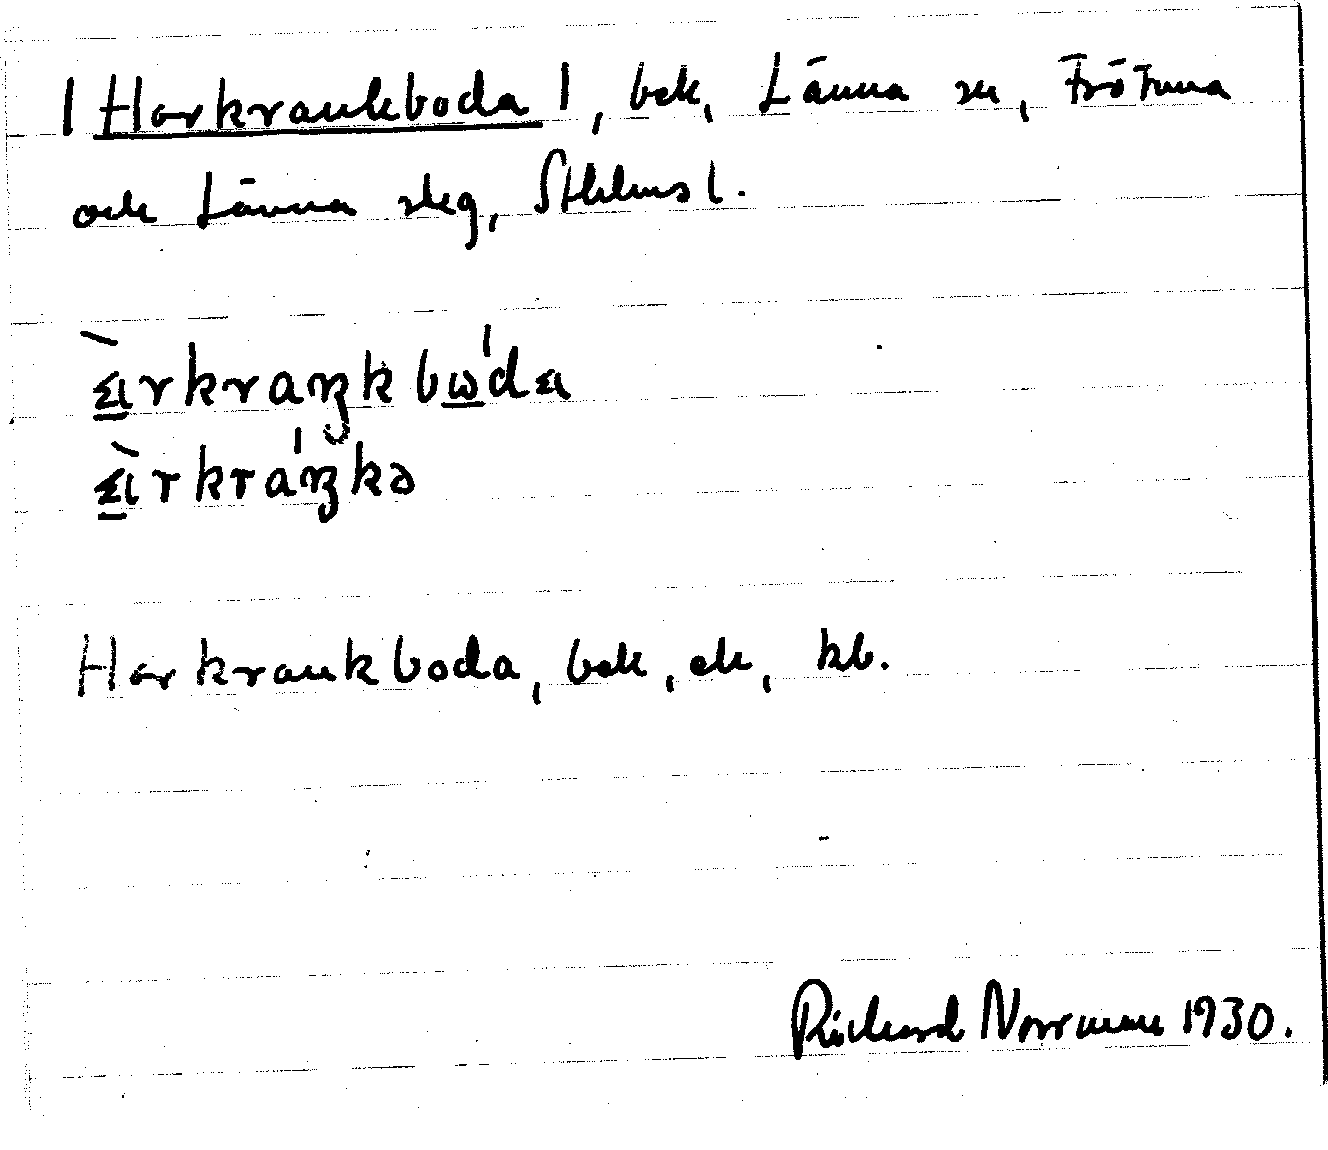 | Harkrankboda |, bek, Länna sn, Frötuna
och Länna skg, Sthlms l.
àrkraŋkbω'da
àrkra'ŋkə
Harkrankboda, bek, ek, kb.
Richard Norrman 1930.